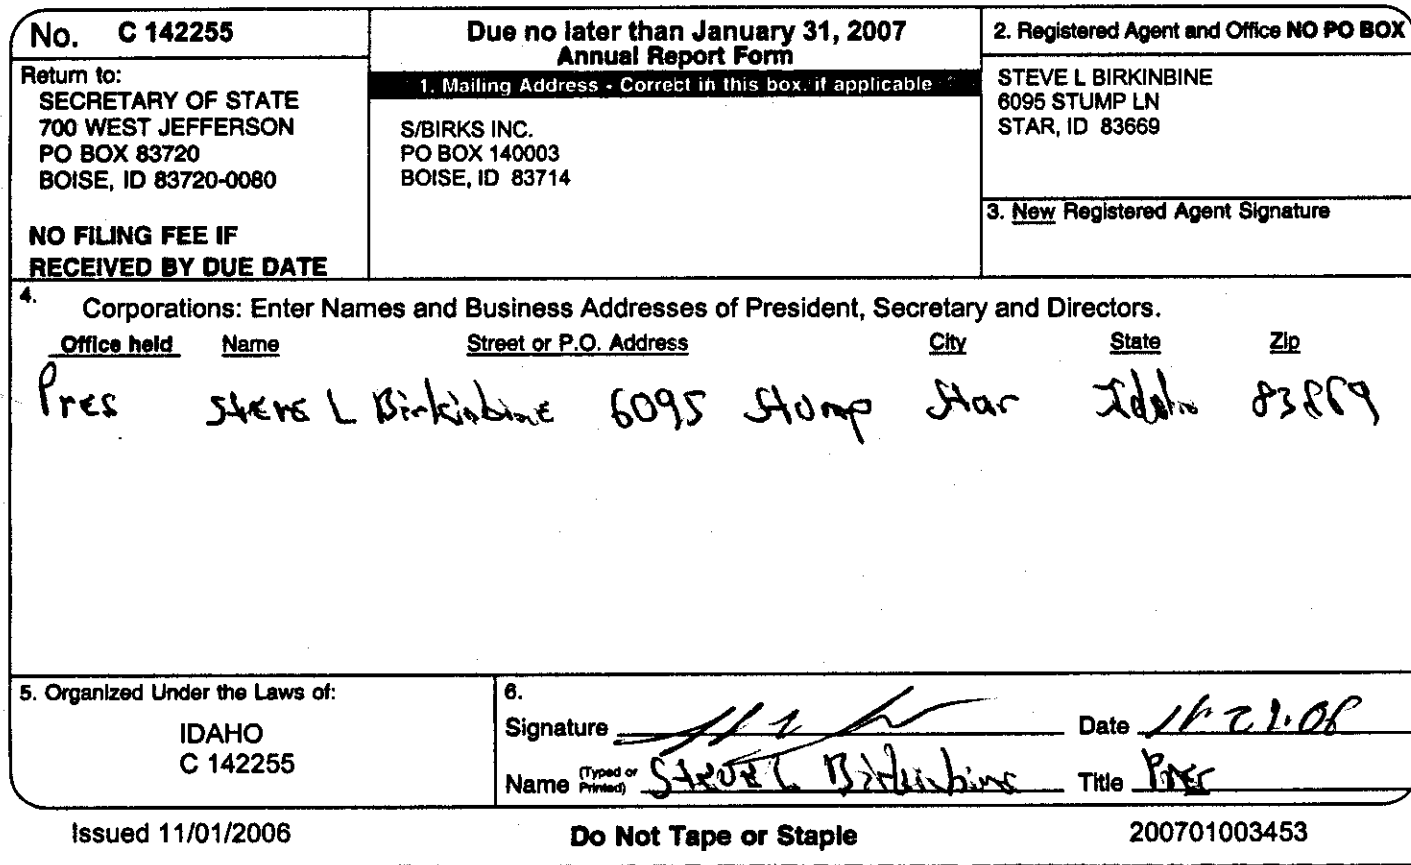 No. C 142255
Return to:
SECRETARY OF STATE
700 WEST JEFFERSON
PO BOX 83720
BOISE, ID 83720-0080
NO FILING FEE IF
RECEIVED BY DUE DATE
Due no later than January 31, 2007
Annual Report Form
1. Mailing Address - Correct in this box, if applicable
S/BIRKS INC.
PO BOX 140003
BOISE, ID 83714
2. Registered Agent and Office NO PO BOX
STEVE L BIRKINBINE
6095 STUMP LN
STAR, ID 83669
3. New Registered Agent Signature
4. Corporations: Enter Names and Business Addresses of President, Secretary and Directors.
Office held Name Street or P.O. Address City State Zip
Pres Steve L Birkinbine 6095 Stump Star Idaho
5. Organized Under the Laws of:
IDAHO
C 142255
6.
Signature Date
Name (Typed or Printed) Steve L. Birkinbine Title Pres
Issued 11/01/2006 Do Not Tape or Staple 200701003453